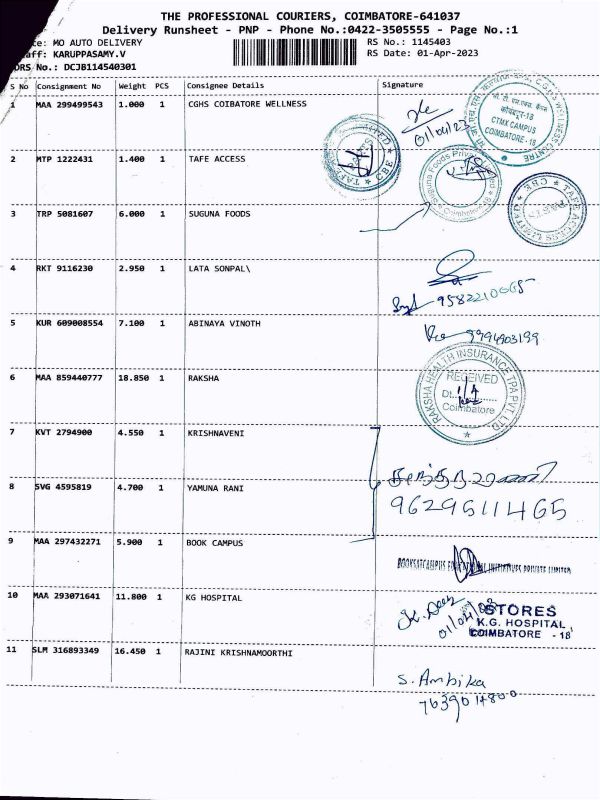 THE PROFESSIONAL COURIERS, COIMBATORE-641037
Delivery Runsheet - PNP - Phone No.:0422-3505555 - Page No.:1
MO AUTO DELIVERY RS No.: 1145403
KARUPPASAMY.V RS Date: 01-Apr-2023
DRS No.: DCJB114540301
S No Consignment No Weight PCS Consignee Details Signature
1 MAA 299499543 1.000 1 CGHS COIBATORE WELLNESS
01/04/23
CTMX CAMPUS
COIMBATORE - 18
2 MTP 1222431 1.400 1 TAFE ACCESS
3 TRP 5081607 6.000 1 SUGUNA FOODS
TAFE ACCESS LIMITED CBE
PARTS
4 RKT 9116230 2.950 1 LATA SONPAL\
5 KUR 609008554 7.100 1 ABINAYA VINOTH
6 MAA 859440777 18.850 1 RAKSHA
RAKSHA HEALTH INSURANCE TPA PVT. LTD
RECEIVED
Dt.
Coimbatore
7 KVT 2794900 4.550 1 KRISHNAVENI
8 SVG 4595819 4.700 1 YAMUNA RANI
9629511465
9 MAA 297432271 5.900 1 BOOK CAMPUS
10 MAA 293071641 11.800 1 KG HOSPITAL
STORES
K.G. HOSPITAL
COIMBATORE - 18
11 SLM 316893349 16.450 1 RAJINI KRISHNAMOORTHI
S. Ambika